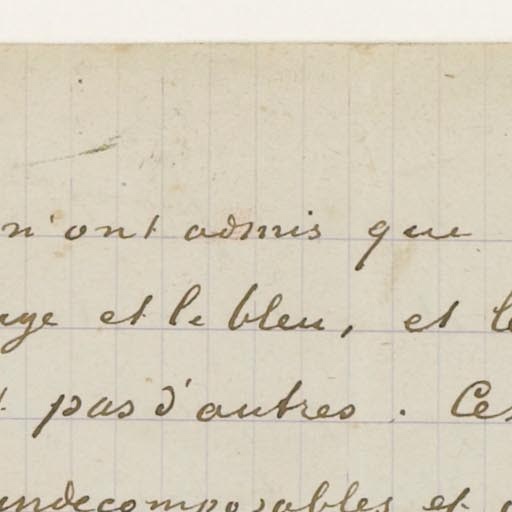 n'ont admis que
et le bleu, et
pas d'autres. Ces
indecomposables et